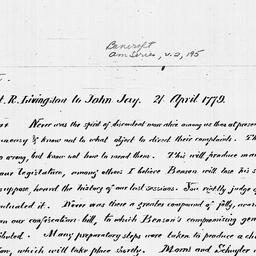 Bancroft
Am Series, v. 2, 195
t. R. Livingston to John Jay. 21 April 1779.
Never was the spirit of discontent more alive among us than at present
uneasy & know not to what object to direct their complaints. Th
o wrong, but know not how to mend them. This will produce ma
our legislature, among others I believe Benson will lose his s
uppose, heard the history of our last sessions. You rightly judge o
nticated it. Never was there a greater compound of folly, avar
n our confiscation bill, to which Benson's compromising gen
ibuted. Many preparatory steps were taken to produce a ch
tion, which will take place shortly. Morris and Schuyler